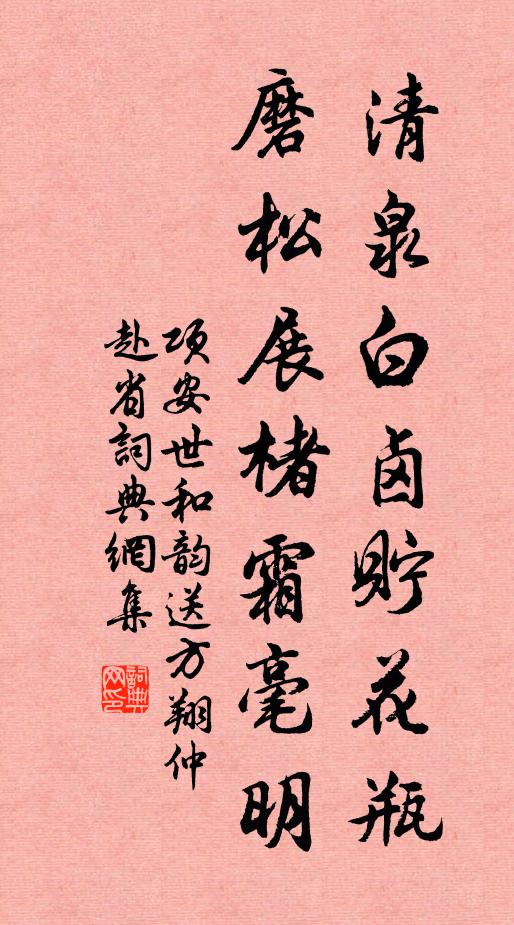 清泉白卤貯花瓶
磨松展楮霜毫明
項安世和韵送方翔仲
赴省詞典網集
詞典网印